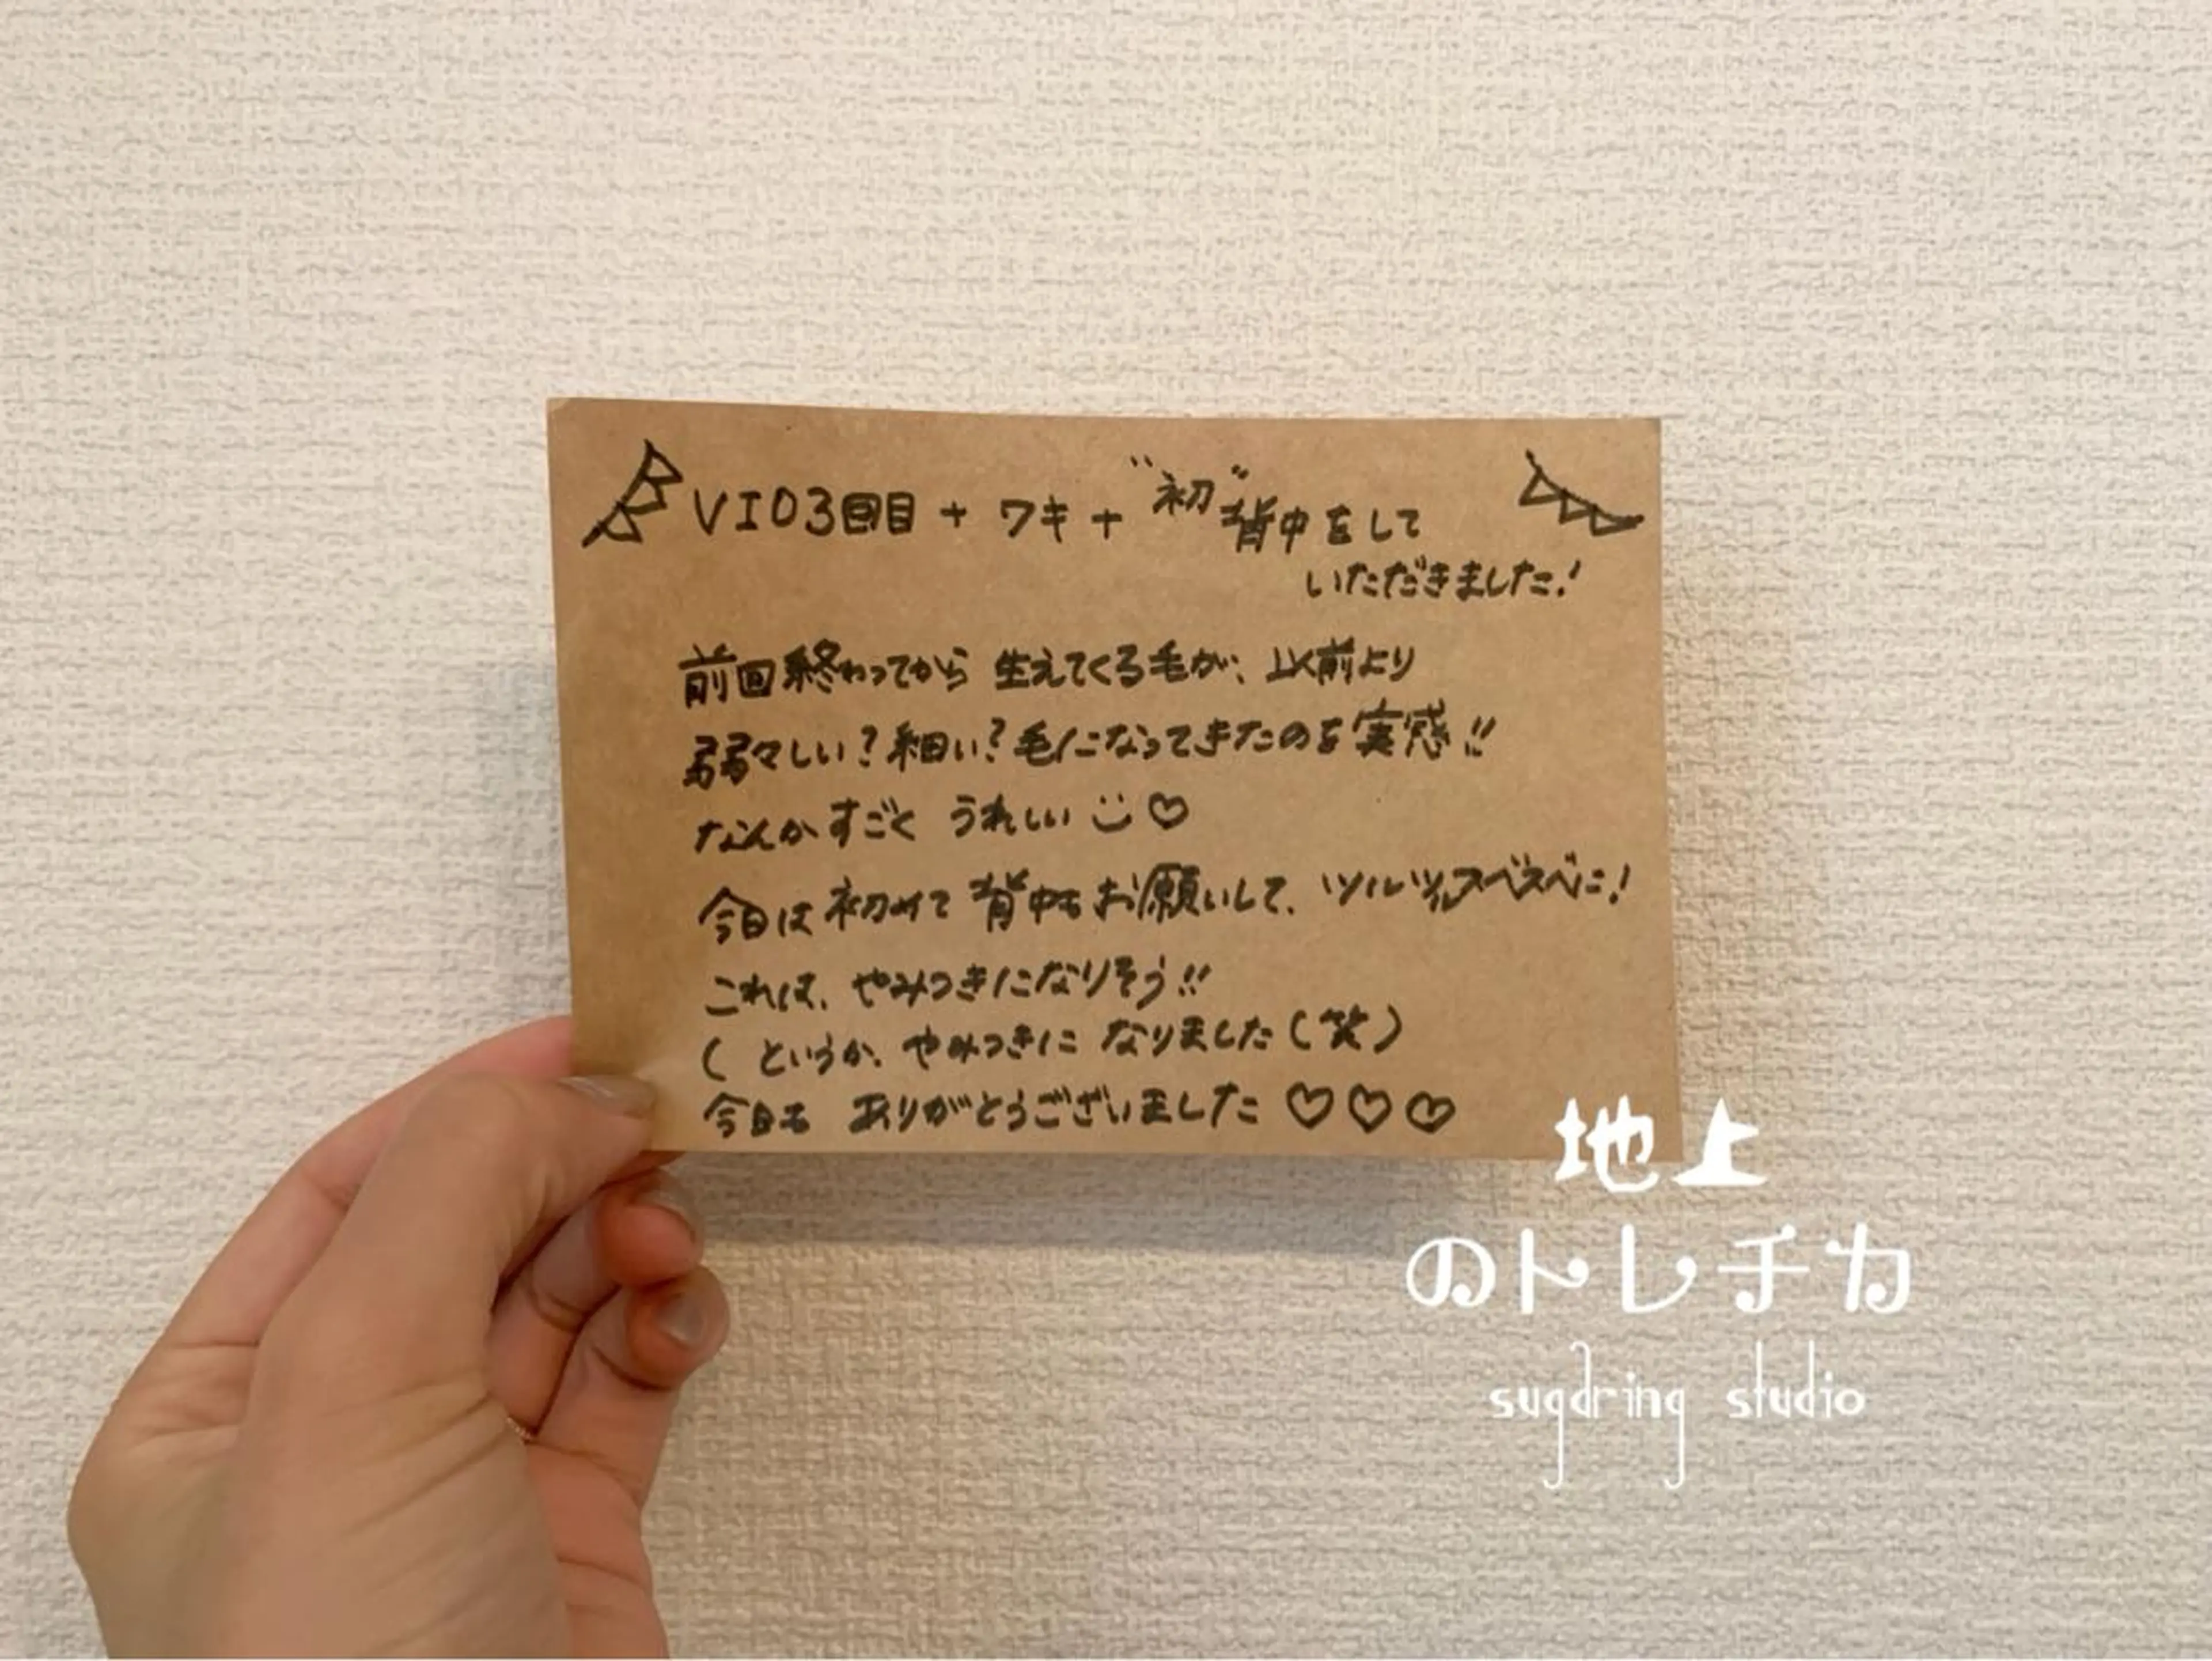 VIO3回目 + ワキ + "初" 背中をして
いただきました!
前回終わってから 生えてくる毛が、以前より
弱々しい?細い?毛になってきたのを実感!!
なんかすごく うれしい
今日は初めて 背中もお願いして、ツルツルスベスベに!
これは、やみつきになりそう!!
( というか、やみつきに なりました(笑)
今日も ありがとうございました ♡♡♡
地上
のトレチカ
sugaring studio